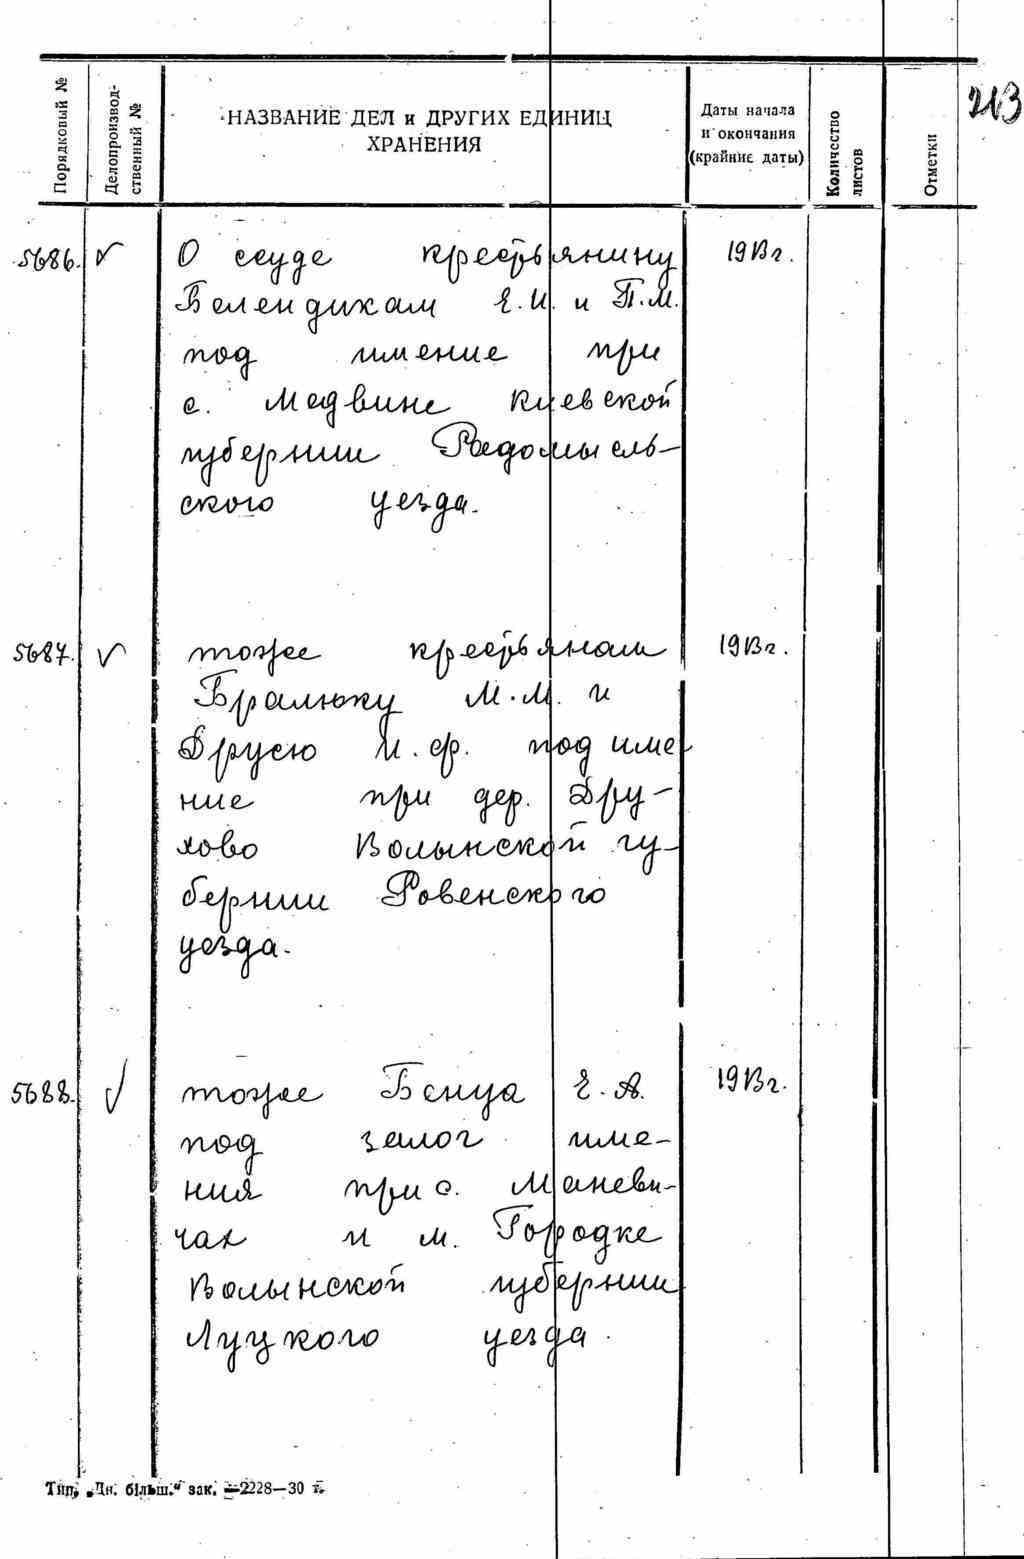 213
Порядковый №
Делопроизвод-
ственный №
НАЗВАНИЕ ДЕЛ и ДРУГИХ ЕДИНИЦ
ХРАНЕНИЯ
Даты начала
и окончания
(крайние даты)
Количество
листов
Отметки
5686. О ссуде крестьянину 1913 г.
Белендикам Е.И. и П.М.
под имение при
с. Медвине Киевской
губернии Радомысль-
ского уезда.
5687. тоже крестьянам 1913 г.
Бралюку М.М. и
Друсю И.Ф. под име
ние при дер. Дру-
хово Волынской гу-
бернии Ровенского
уезда.
5688. тоже Бенуа Е.А. 1913 г.
под залог име-
ния при с. Маневи-
чах и м. Городке
Волынской губернии
Луцкого уезда.
Тип. „Дн. більш." зак. №2228—30 г.